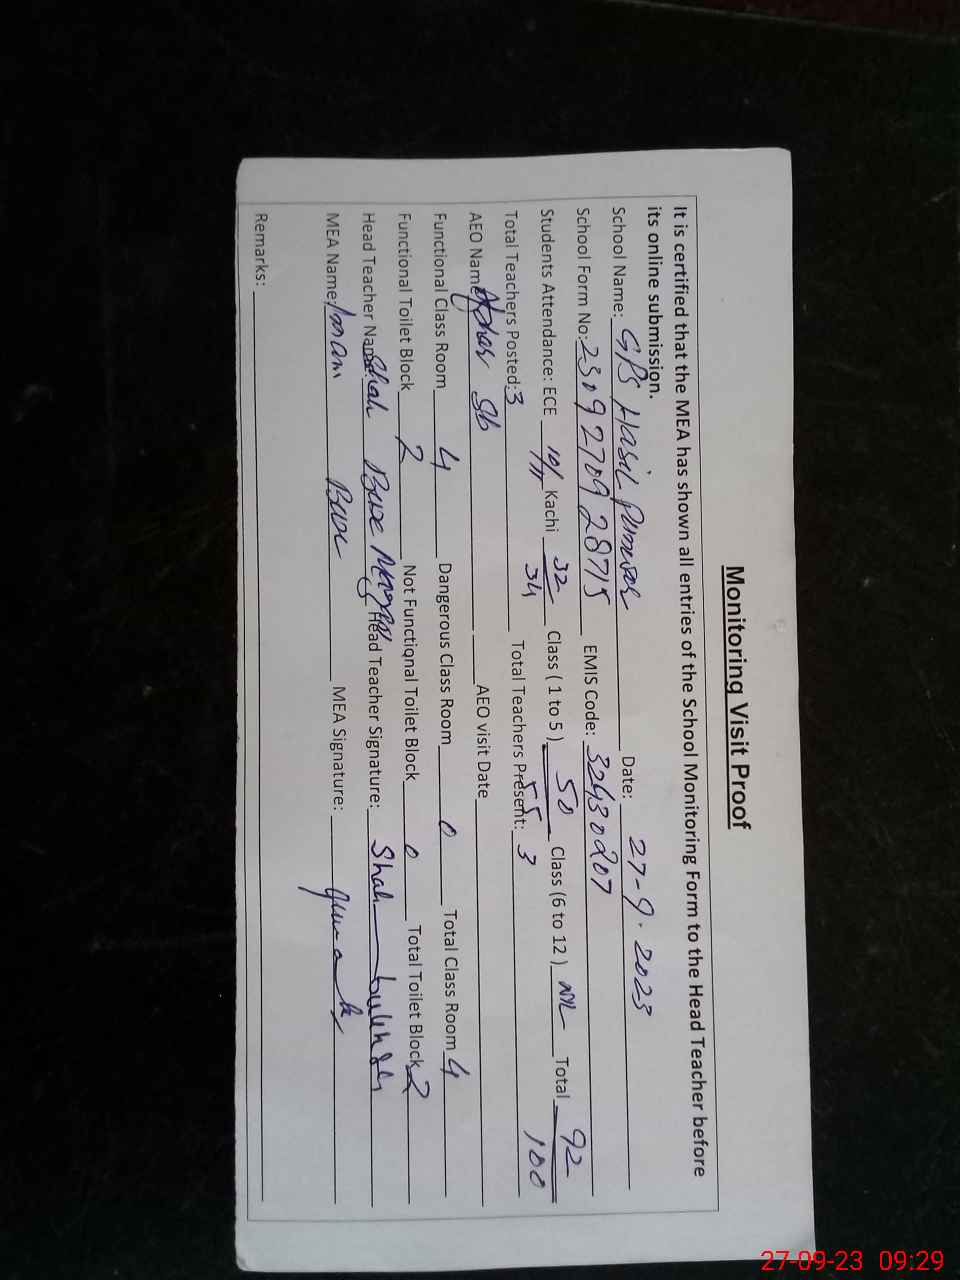 Monitoring Visit Proof
It is certified that the MEA has shown all entries of the School Monitoring Form to the Head Teacher before
its online submission.
School Name: GPS Hasil Date: 27-9-2023
School Form No: 2309270928715 EMIS Code: 32430207
Students Attendance: ECE 10/11 Kachi 32/34 Class ( 1 to 5 ) 50/55 Class (6 to 12 ) Total 92/100
Total Teachers Posted: 3 Total Teachers Present: 3
AEO Name Sb AEO visit Date
Functional Class Room 4 Dangerous Class Room 0 Total Class Room 4
Functional Toilet Block 2 Not Functional Toilet Block 0 Total Toilet Block 2
Head Teacher Name: Shah Head Teacher Signature: Shah
MEA Name: Imam MEA Signature:
Remarks:
27-09-23 09:29